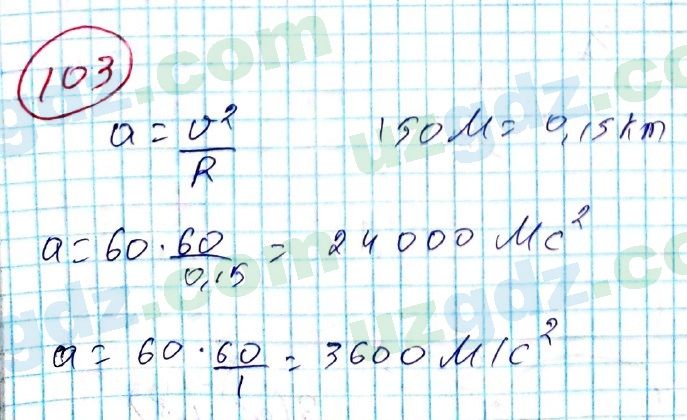 103
a = υ²/R 150 М = 0,15 km
a = 60 · 60/0,15 = 24 000 Мс²
a = 60 · 60/1 = 3600 М/с²
uzgdz.com